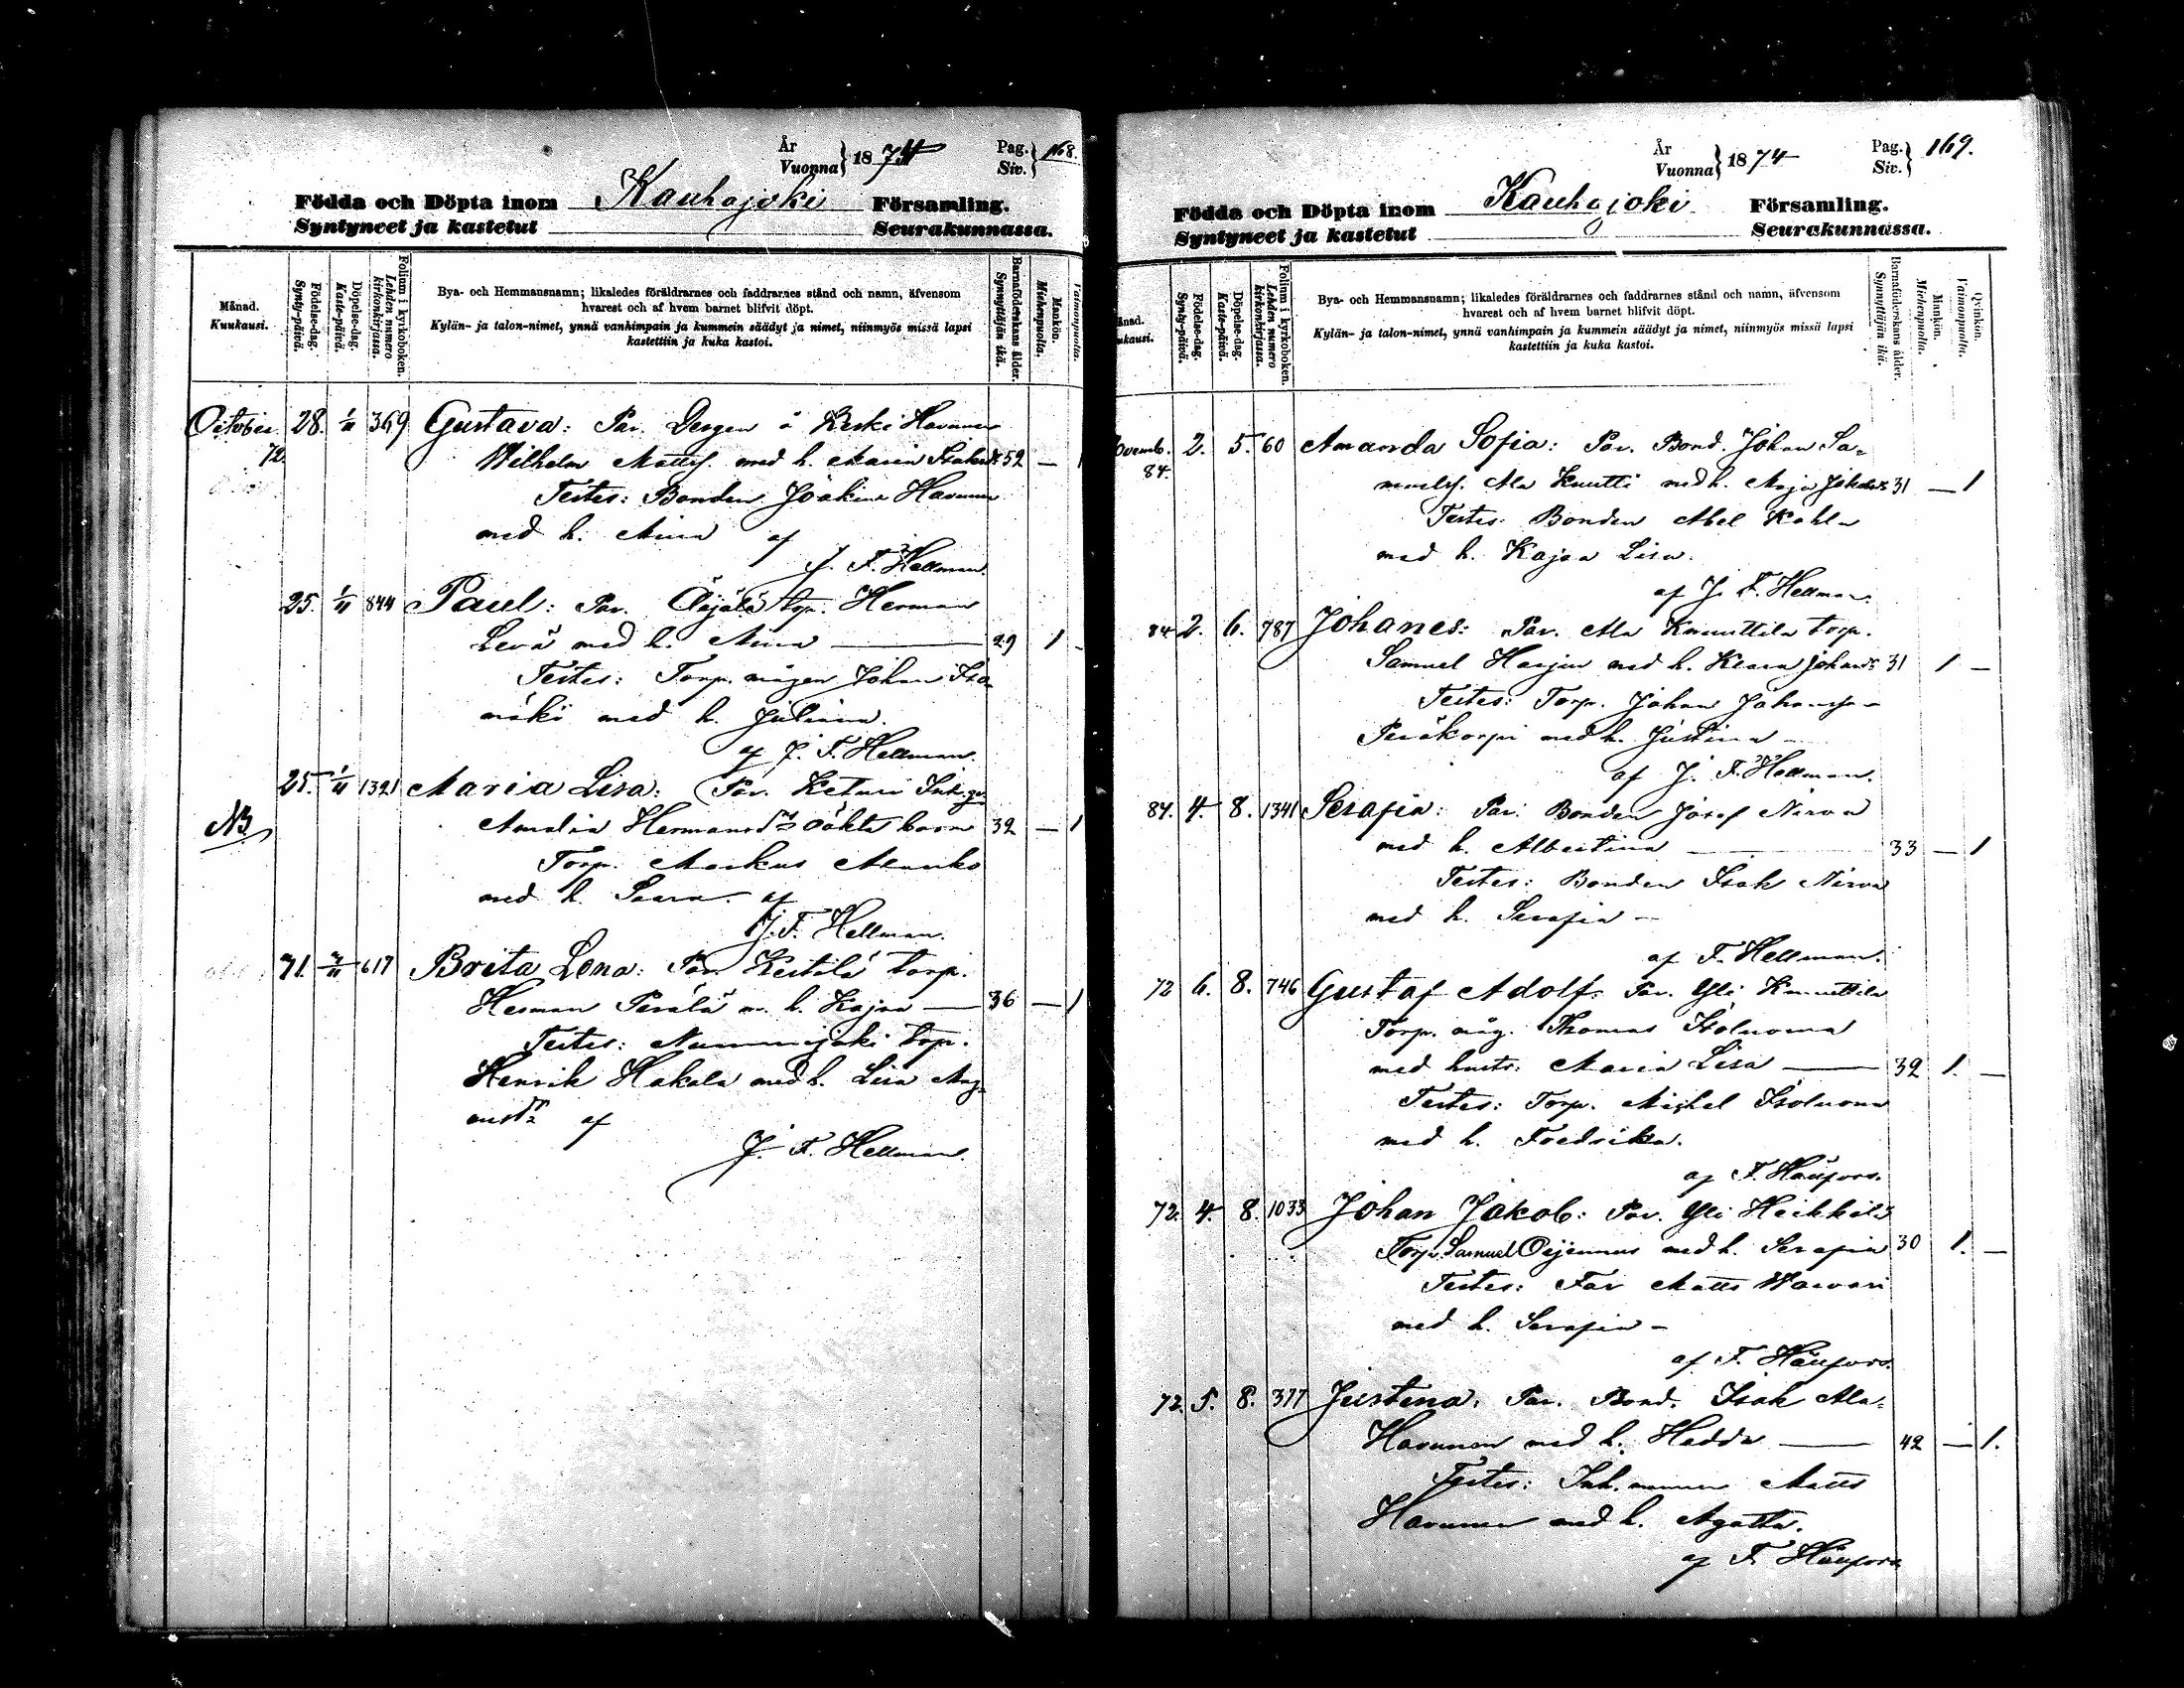 År
Vuonna } 1874
Pag.
Siv. } 168.
Födda och Döpta inom Kauhajoki Församling.
Syntyneet ja kastetut Seurakunnassa.
Månad.
Kuukausi.
Födelse-dag.
Synty-päivä.
Döpelse-dag.
Kaste-päivä.
Folium i kyrkoboken.
Lehden numero kirkonkirjassa.
Bya- och Hemmansnamn; likaledes föräldrarnes och faddrarnes stånd och namn, äfvensom
hvarest och af hvem barnet blifvit döpt.
Kylän- ja talon-nimet, ynnä vanhimpain ja kummein säädyt ja nimet, niinmyös missä lapsi
kastettiin ja kuka kastoi.
Barnaföderskans ålder.
Synnyttäjän ikä.
Mankön.
Miehenpuolta.
Vaimonpuolta.
October 28. 1/11 369 Gustava: Par. Drgen å Keski Havunen
72. Wilhelm Matts. med h. Maria 52 — 1
Testes: Bonden Joakim Havunen
med h. Mina af
J. F. Hellman.
25. 1/11 844 Paul: Par. Äijälä torp. Herman
Levä med h. Mina — 29 1 -
Testes: Torp. mågen Johan Iso-
mäki med h. Juliana.
af J. F. Hellman.
25. 1/11 1321 Maria Lisa: Par. Keturi Inh. 
NB Amalia Hermansdr oäkta barn 32 — 1
Torp. Markus Alanko
med h. Saara. af
J. F. Hellman.
31. 2/11 617 Brita Lena: Par. Keitilä torp.
Herman Perälä m. h. Kajsa — 36 — 1
Testes: Nummijoki torp.
Henrik Hakala med h. Lisa Mag-
nusdr af
J. F. Hellman.
År
Vuonna } 1874
Pag.
Siv. } 169.
Födda och Döpta inom Kauhajoki Församling.
Syntyneet ja kastetut Seurakunnassa.
ånad.
ukausi.
Födelse-dag.
Synty-päivä.
Döpelse-dag.
Kaste-päivä.
Folium i kyrkoboken.
Lehden numero kirkonkirjassa.
Bya- och Hemmansnamn; likaledes föräldrarnes och faddrarnes stånd och namn, äfvensom
hvarest och af hvem barnet blifvit döpt.
Kylän- ja talon-nimet, ynnä vanhimpain ja kummein säädyt ja nimet, niinmyös missä lapsi
kastettiin ja kuka kastoi.
Barnaföderskans ålder.
Synnyttäjän ikä.
Mankön.
Miehenpuolta.
Qvinkön.
Vaimonpuolta.
ovemb. 2. 5. 60 Amanda Sofia: Par. Bond. Johan Sa-
84. muelss. Ala Knutti med h. Maja 31 — 1
Testes: Bonden Abel Kohla
med h. Kajsa Lisa.
af J. F. Hellman.
84 2. 6. 787 Johanes: Par. Ala Knuuttila torp.
Samuel Harju med h. Johansdr 31 1 —
Testes: Torp. Johan Johansson
Peräkorpi med h. Justina —
af J. F. Hellman.
84. 4. 8. 1341 Serafia: Par. Bonden Josef Nirva
med h. Albertina — 33 — 1
Testes: Bonden Isak Nirva
med h. Serafia —
af F. Hellman.
72 6. 8. 746 Gustaf Adolf: Par. Yli Knuuttila
Torp. måg. Thomas Isoluoma
med hustr. Maria Lisa — 32 1. —
Testes: Torp. Michel Isoluoma
med h. Fredrika.
af F. Häufors.
72. 4. 8. 1033 Johan Jakob: Par. Yli Heikkilä
Torp. Samuel Oijennus med h. Serafia 30 1. —
Testes: Far Matts Waivari
med h. Serafia —
af F. Häufors.
72. 5. 8. 377 Justina: Par. Bond. Isak Ala-
Havunen med h. Hedda — 42 — 1.
Testes: Inh. mannen Matts
Havunen med h. Agatha.
af F. Häufors